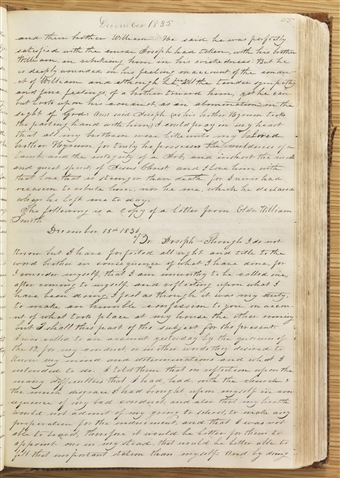 December 1835
and their brother William He said he was perfectly
satisfied with the course Joseph had taken, with his brother
William in rebuking him in his wickedness. But he
is deeply wounded in his feelings on account of the conduct
of William and although he has all the tender sympathy
and fine feelings, of a brother toward him, yet he can
but look upon his conduct, as an abomination in the
sight of God. And said Joseph (as his brother Hyrum took
the parting hand with him,) I could pray in my heart
that all my brethren were like unto my beloved
brother Hyrum for truly he possesses the mildness of a
Lamb and the integrity of a Job, and in short the meek
and quiet spirit of Jesus Christ and I love him with
that love that is stronger than death for I never had
occasion to rebuke him, nor he me which he declared
when he left me to day.
The following is a copy of a letter from Elder William
Smith.
December 18th 1835
Br. Joseph— Though I do not
know but I have forfeited all right and title to the
word brother in consequence of what I have done for
I consider myself, that I am unworthy to be called one,
after coming to myself and reflecting upon what I
have been doing I feel as though it was my duty,
to make an humble confession to you on account
of what took place at my house the other evening
but I shall this part of the subject for the present
I was called to an account yesterday by the quorum of
the 12. for my conduct, or rather yesterday desired to
know my mind and determinations and what I
intended to do. I told them that on reflection upon the
many difficulties that I had had with the church &
the disgrace I had brought upon myself in consequence
of my bad conduct, and also that my health
would not admit of my going to school to make any
preparation for the endowment, and that I was not
able to travel, therefore it would be better for them to
appoint one in my stead that would be better able to
fill that important station than myself. And by doing